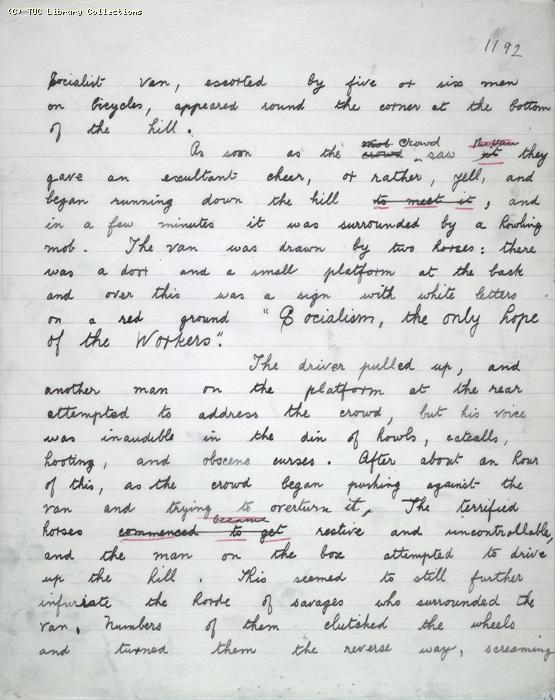 (C) TUC Library Collections
1192
Socialist van, escorted by five or six men
on bicycles, appeared round the corner at the bottom
of the hill.
mob Crowd the van
As soon as the crowd saw it they
gave an exultant cheer, or rather, yell, and
began running down the hill to meet it, and
in a few minutes it was surrounded by a howling
mob. The van was drawn by two horses: there
was a door and a small platform at the back
and over this was a sign with white letters
on a red ground "Socialism, the only hope
of the Workers".
The driver pulled up, and
another man on the platform at the rear
attempted to address the crowd, but his voice
was inaudible in the din of howls, catcalls,
hooting, and obscene curses. After about an hour
of this, as the crowd began pushing against the
van and trying to overturn it, The terrified
became
horses commenced to get restive and uncontrollable,
and the man on the box attempted to drive
up the hill. This seemed to still further
infuriate the horde of savages who surrounded the
van. Numbers of them clutched the wheels
and turned them the reverse way, screaming